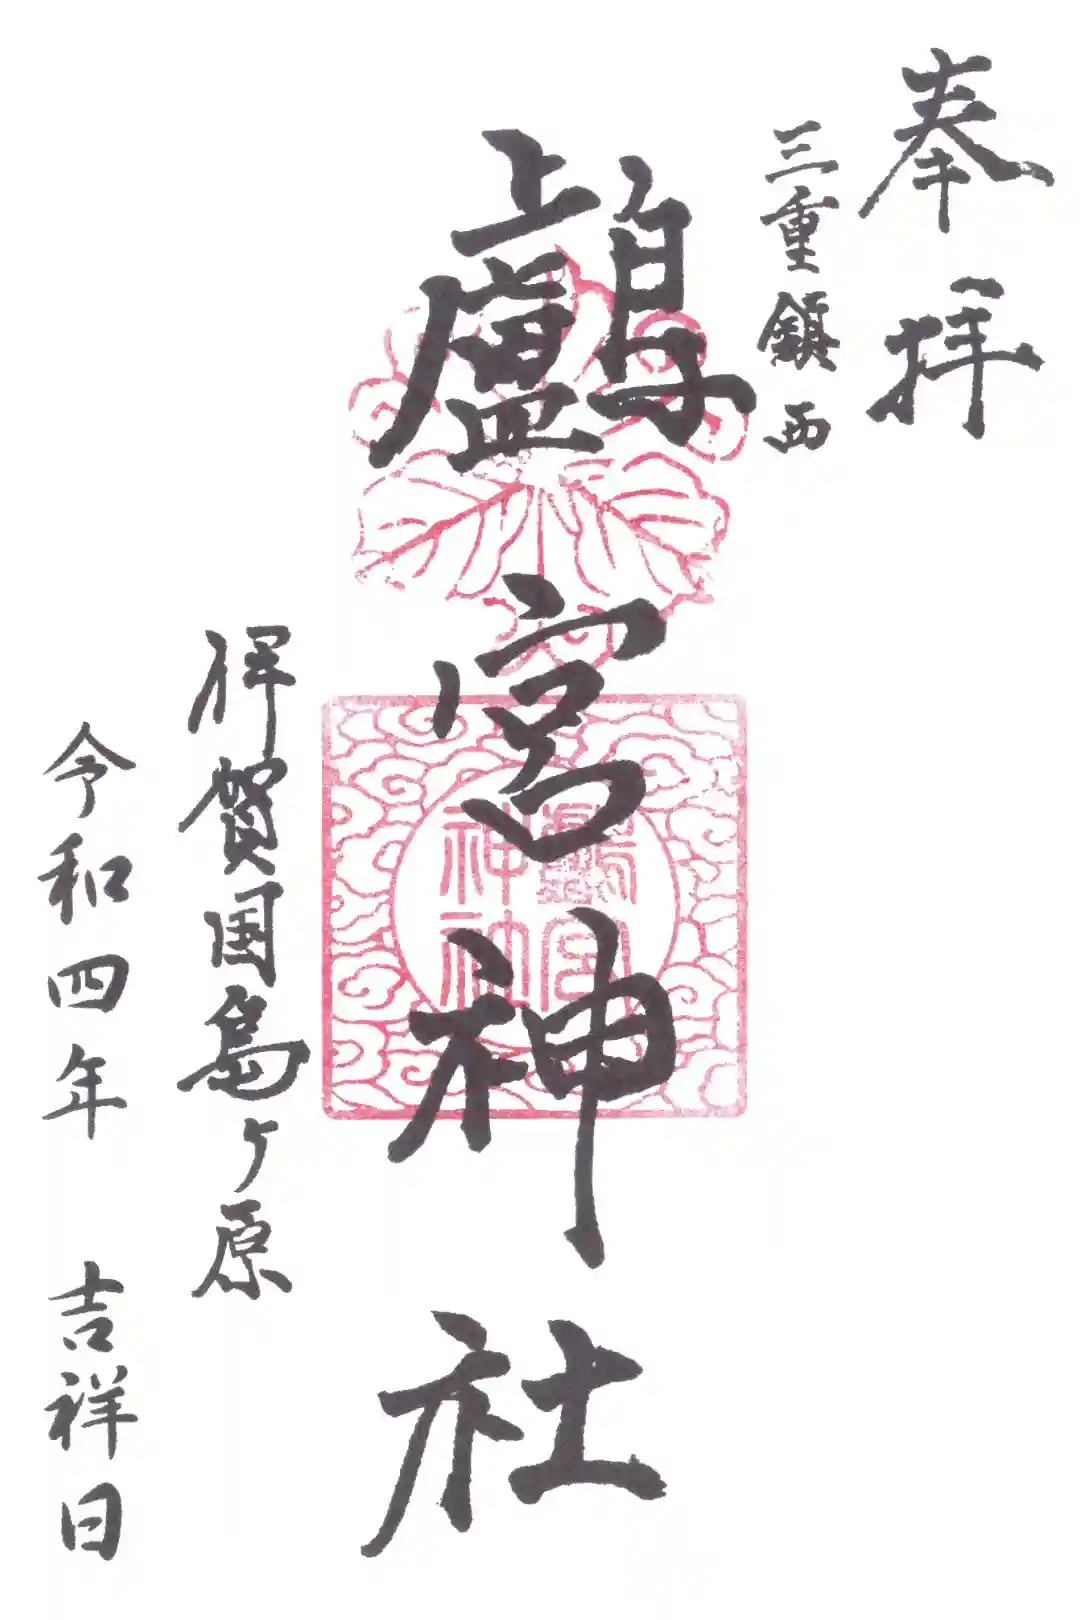 奉拝
三重鎮西
鸕宮神社
伊賀国島ヶ原
令和四年 吉祥日
鸕宮
神